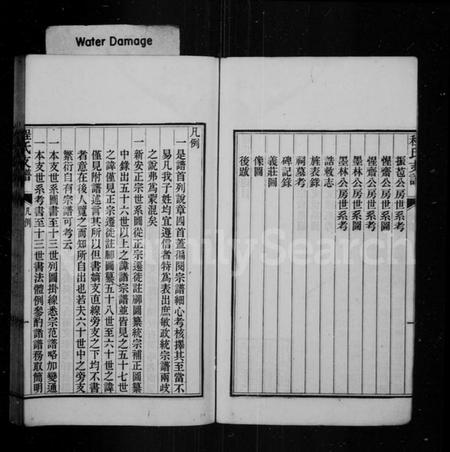 Water Damage
程氏支譜
振茝公房世系考
惺齋公房世系圖
惺齋公房世系考
墨林公房世系圖
墨林公房世系考
誥敕志
旌表錄
祠墓考
碑記錄
義莊圖
像圖
後跋
凡例
一是譜首列說章四首蓋徧閱宗譜細心考核擇其至當不
易凡我子姓均宜遵信者特為表出庶敏政統宗譜兩歧
之說弗為蒙混矣
一新安正宗世系圖從正宗遷徙註腳圖纂統宗補正圖纂
中錄出五十六世以上之諱譜宗譜並皆見之五十七世
之諱僅見正宗遷徙註腳圖纂五十八世至六十世之諱
僅見附譜述言其所以但書嫡支直線旁支之下均不書
者意在後人覽之而知所自出也若夫六十世中之旁支
繁衍自有宗譜可考云
一本支世系圖書至十三世列圖掛線悉宗范譜略加變通
一本支世系考書至十三世書法體例參酌諸譜務取簡明
程氏支譜
凡例
FamilySearch